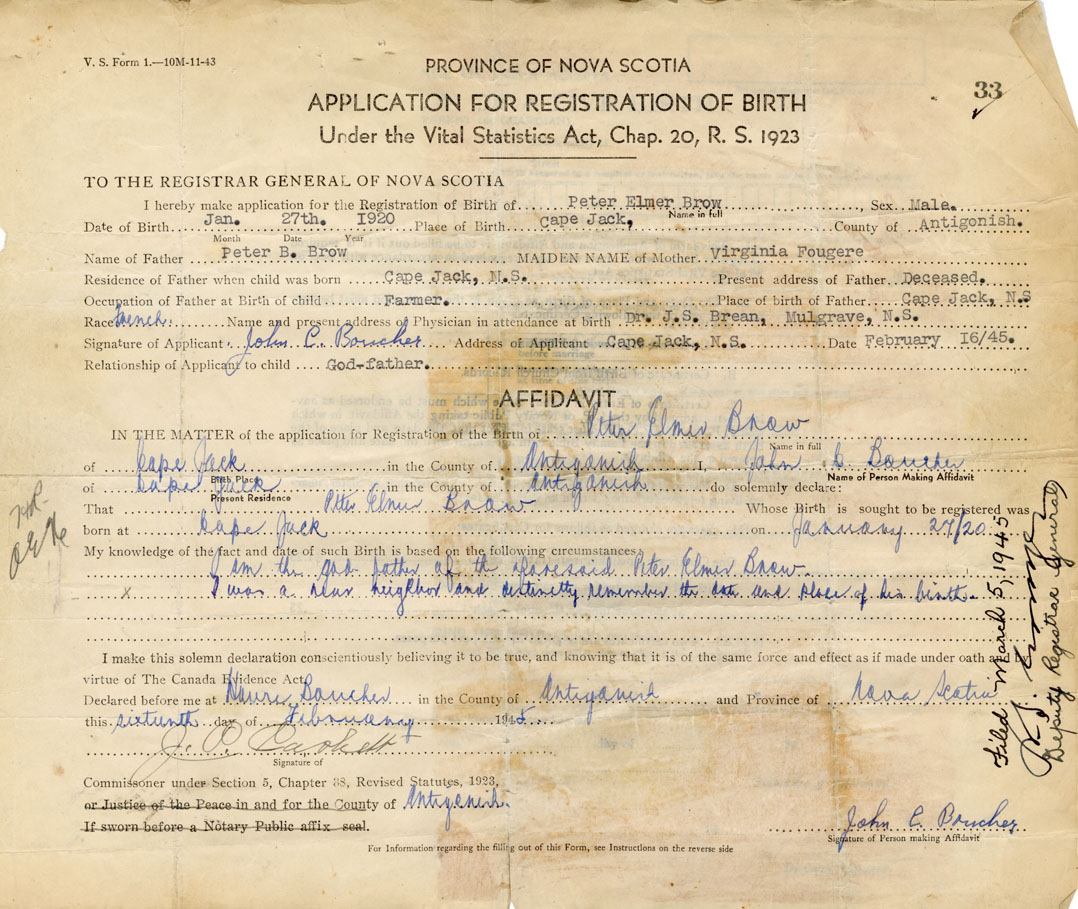 V. S. Form 1.—10M-11-43
PROVINCE OF NOVA SCOTIA
33
APPLICATION FOR REGISTRATION OF BIRTH
Under the Vital Statistics Act, Chap. 20, R. S. 1923
TO THE REGISTRAR GENERAL OF NOVA SCOTIA
I hereby make application for the Registration of Birth of Peter Elmer Brow, Sex Male.
Name in full
Date of Birth Jan. 27th. 1920 Place of Birth Cape Jack, County of Antigonish.
Month Date Year
Name of Father Peter B. Brow MAIDEN NAME of Mother Virginia Fougere
Residence of Father when child was born Cape Jack, N.S. Present address of Father Deceased.
Occupation of Father at Birth of child Farmer. Place of birth of Father Cape Jack, N.S
Race French. Name and present address of Physician in attendance at birth Dr. J.S. Brean, Mulgrave, N.S.
Signature of Applicant John C. Boucher Address of Applicant Cape Jack, N.S. Date February 16/45.
Relationship of Applicant to child God-father.
AFFIDAVIT
IN THE MATTER of the application for Registration of the Birth of Peter Elmer Brow
Name in full
of Cape Jack in the County of Antigonish I, John C Boucher
Birth Place Name of Person Making Affidavit
of Cape Jack in the County of Antigonish do solemnly declare:
Present Residence
That Peter Elmer Brow Whose Birth is sought to be registered was
born at Cape Jack on January 27/20
My knowledge of the fact and date of such Birth is based on the following circumstances:
I am the god father of the aforesaid Peter Elmer Brow.
x I was a near neighbor and distinctly remember the date and place of his birth.
I make this solemn declaration conscientiously believing it to be true, and knowing that it is of the same force and effect as if made under oath and by
virtue of The Canada Evidence Act.
Declared before me at Havre Boucher in the County of Antigonish and Province of Nova Scotia
this sixteenth day of February 1945
Signature of
Commissoner under Section 5, Chapter 38, Revised Statutes, 1923,
or Justice of the Peace in and for the County of Antigonish.
If sworn before a Notary Public affix seal.
John C. Boucher
Signature of Person making Affidavit
For Information regarding the filling out of this Form, see Instructions on the reverse side
Filed March 5, 1945
Deputy Registrar General